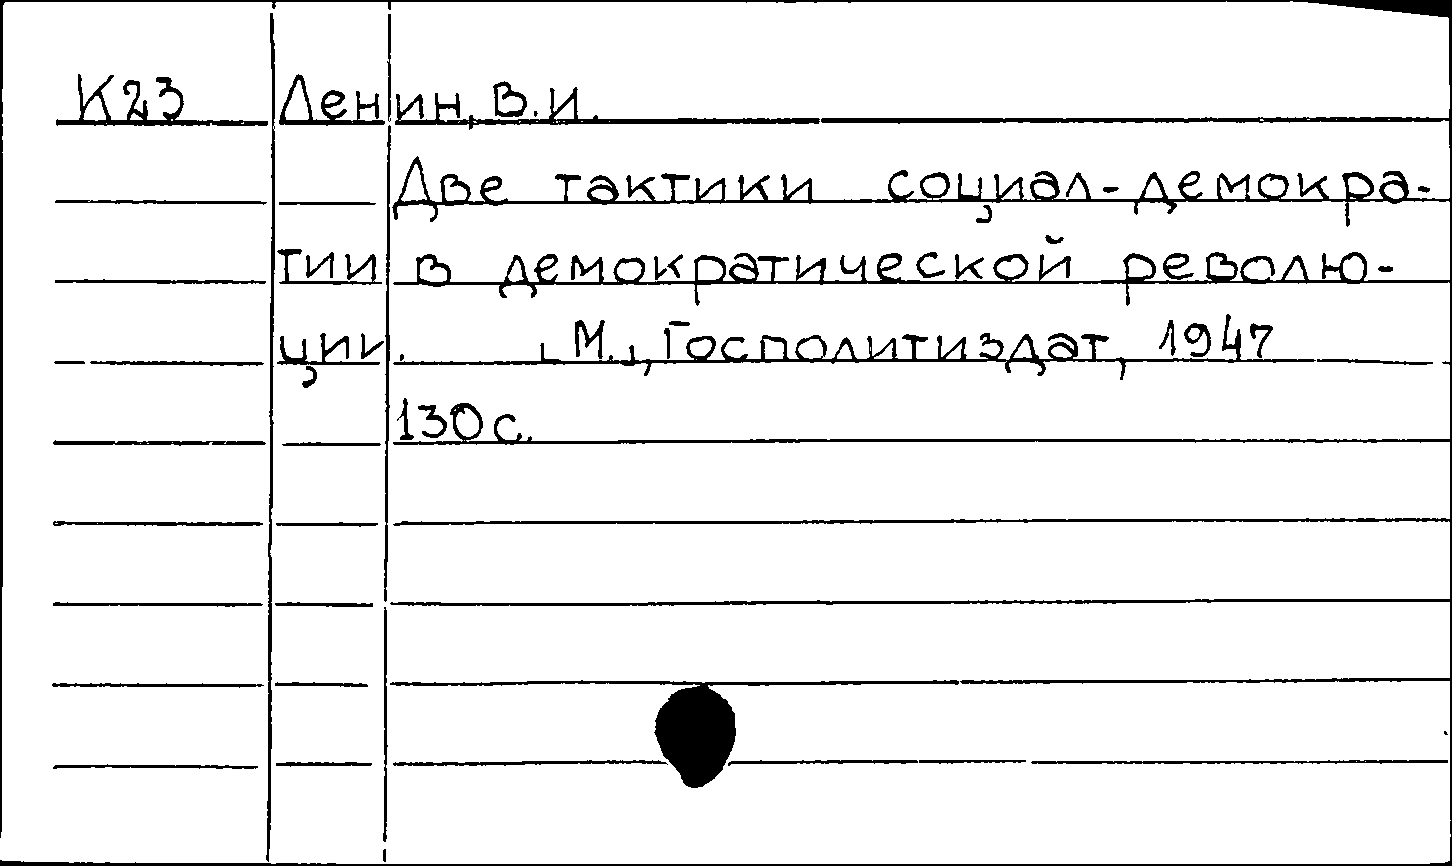 К23 Ленин, В.И.
Две тактики социал-демокра-
тии в демократической револю-
ции. [М.], Госполитиздат, 1947
130 с.